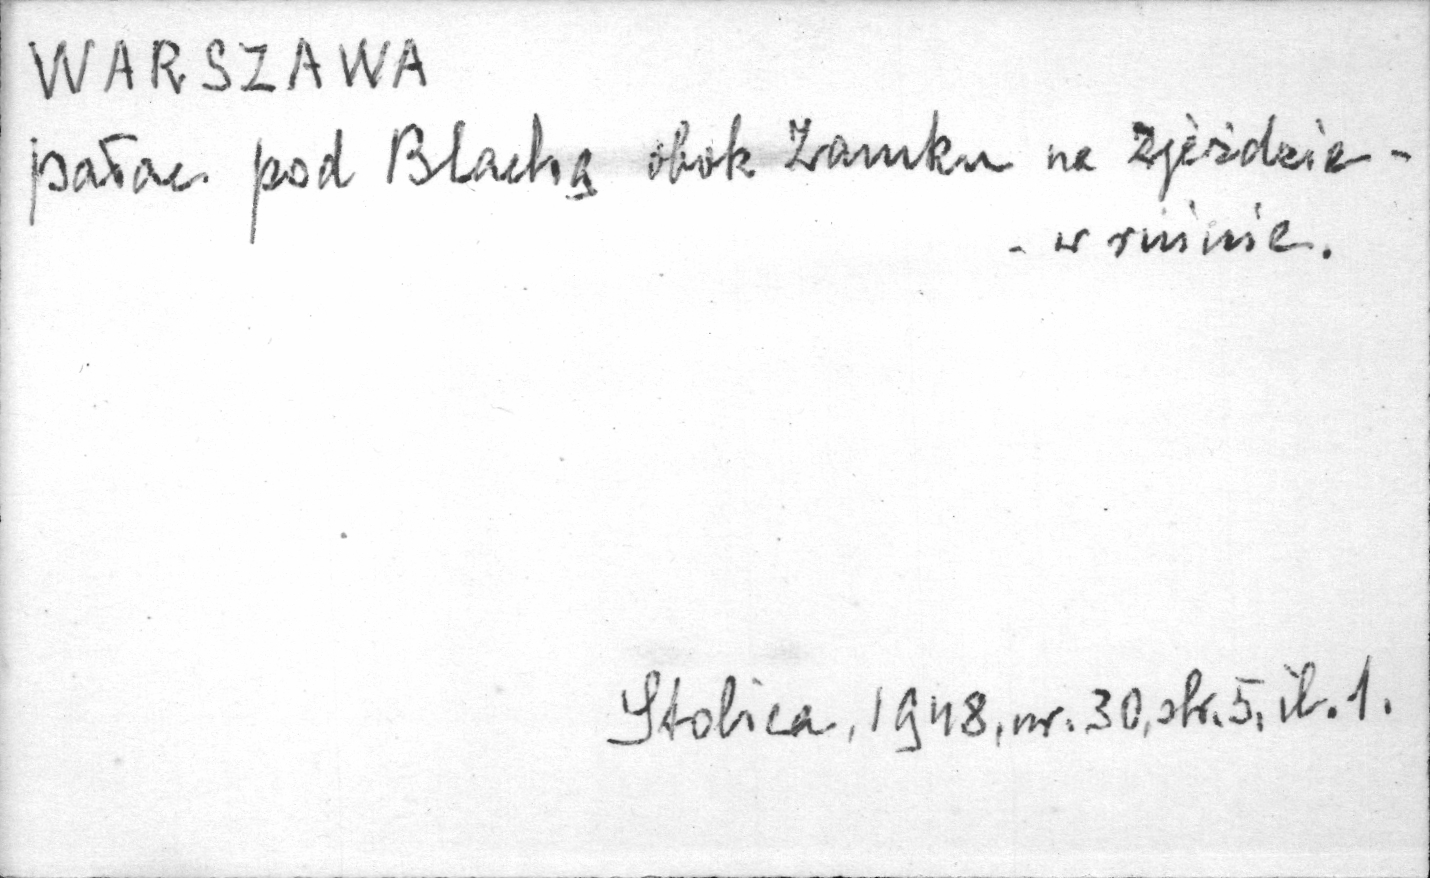 WARSZAWA
pałac pod Blachą obok Zamku na Zjeździe -
- w ruinie.
Stolica, 1948, nr. 30, str. 5, il. 1.